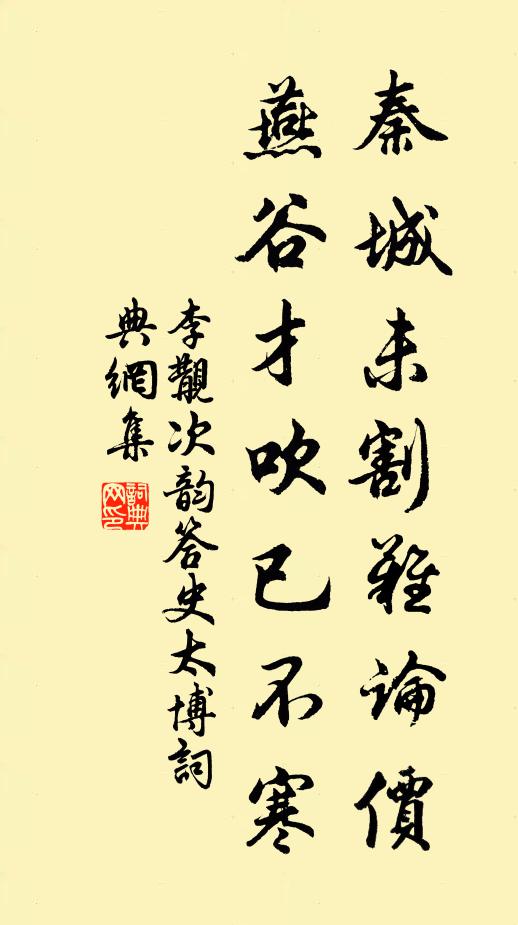 秦城未割難論價
燕谷才吹已不寒
李覯次韵答史太博詞
典網集
詞典
网印